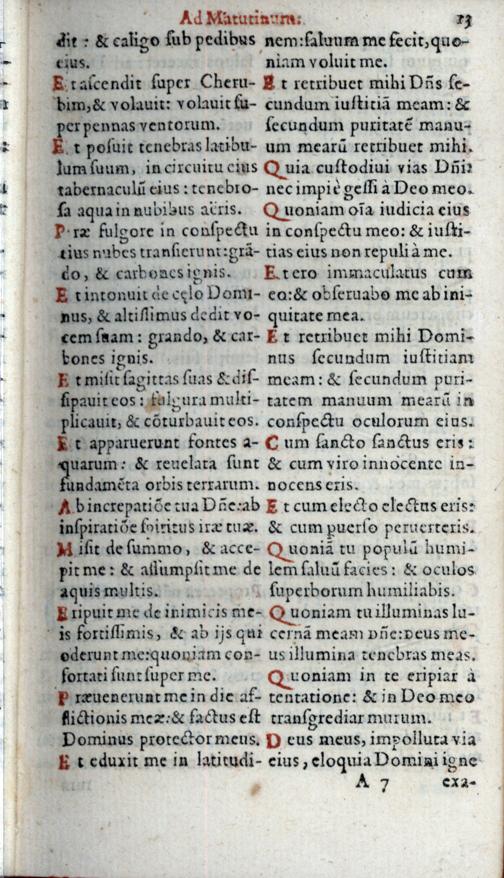 Ad Matutinum: 13
dit : & caligo ſub pedibus
eius.
Et aſcendit ſuper Cheru-
bim, & volauit: volauit ſu-
per pennas ventorum.
Et poſuit tenebras latibu-
lum ſuum, in circuitu eius
tabernaculũ eius : tenebro-
ſa aqua in nubibus aëris.
Præ fulgore in conſpectu
eius nubes tranſierunt: grã-
do, & carbones ignis.
Et intonuit de cęlo Domi-
nus, & altiſſimus dedit vo-
cem ſuam : grando, & car-
bones ignis.
Et miſit ſagittas ſuas & diſ-
ſipauit eos : fulgura multi-
plicauit, & cõturbauit eos.
Et apparuerunt fontes a-
quarum : & reuelata ſunt
fundamẽta orbis terrarum.
Ab increpatiõe tua Dñe: ab
inſpiratiõe ſpiritus iræ tuæ.
Miſit de ſummo, & acce-
pit me : & aſſumpſit me de
aquis multis.
Eripuit me de inimicis me-
is fortiſſimis, & ab ijs qui
oderunt me: quoniam con-
fortati ſunt ſuper me.
Præuenerunt me in die af-
flictionis meæ: & factus eſt
Dominus protector meus.
Et eduxit me in latitudi-
nem: ſaluum me fecit, quo-
niam voluit me.
Et retribuet mihi Dñs ſe-
cundum iuſtitiã meam: &
ſecundum puritatẽ manu-
um mearũ retribuet mihi.
Quia cuſtodiui vias Dñi:
nec impiè geſſi à Deo meo.
Quoniam oĩa iudicia eius
in conſpectu meo: & iuſti-
tias eius non repuli à me.
Et ero immaculatus cum
eo: & obſeruabo me ab ini-
quitate mea.
Et retribuet mihi Domi-
nus ſecundum iuſtitiam
meam : & ſecundum puri-
tatem manuum mearũ in
conſpectu oculorum eius.
Cum ſancto ſanctus eris :
& cum viro innocente in-
nocens eris.
Et cum electo electus eris:
& cum puerſo peruerteris.
Quoniã tu populũ humi-
lem ſaluũ facies : & oculos
ſuperborum humiliabis.
Quoniam tu illuminas lu-
cernã meam Dñe: Deus me-
us illumina tenebras meas.
Quoniam in te eripiar à
tentatione: & in Deo meo
tranſgrediar murum.
Deus meus, impolluta via
eius, eloquia Domini igne
A 7 exa-